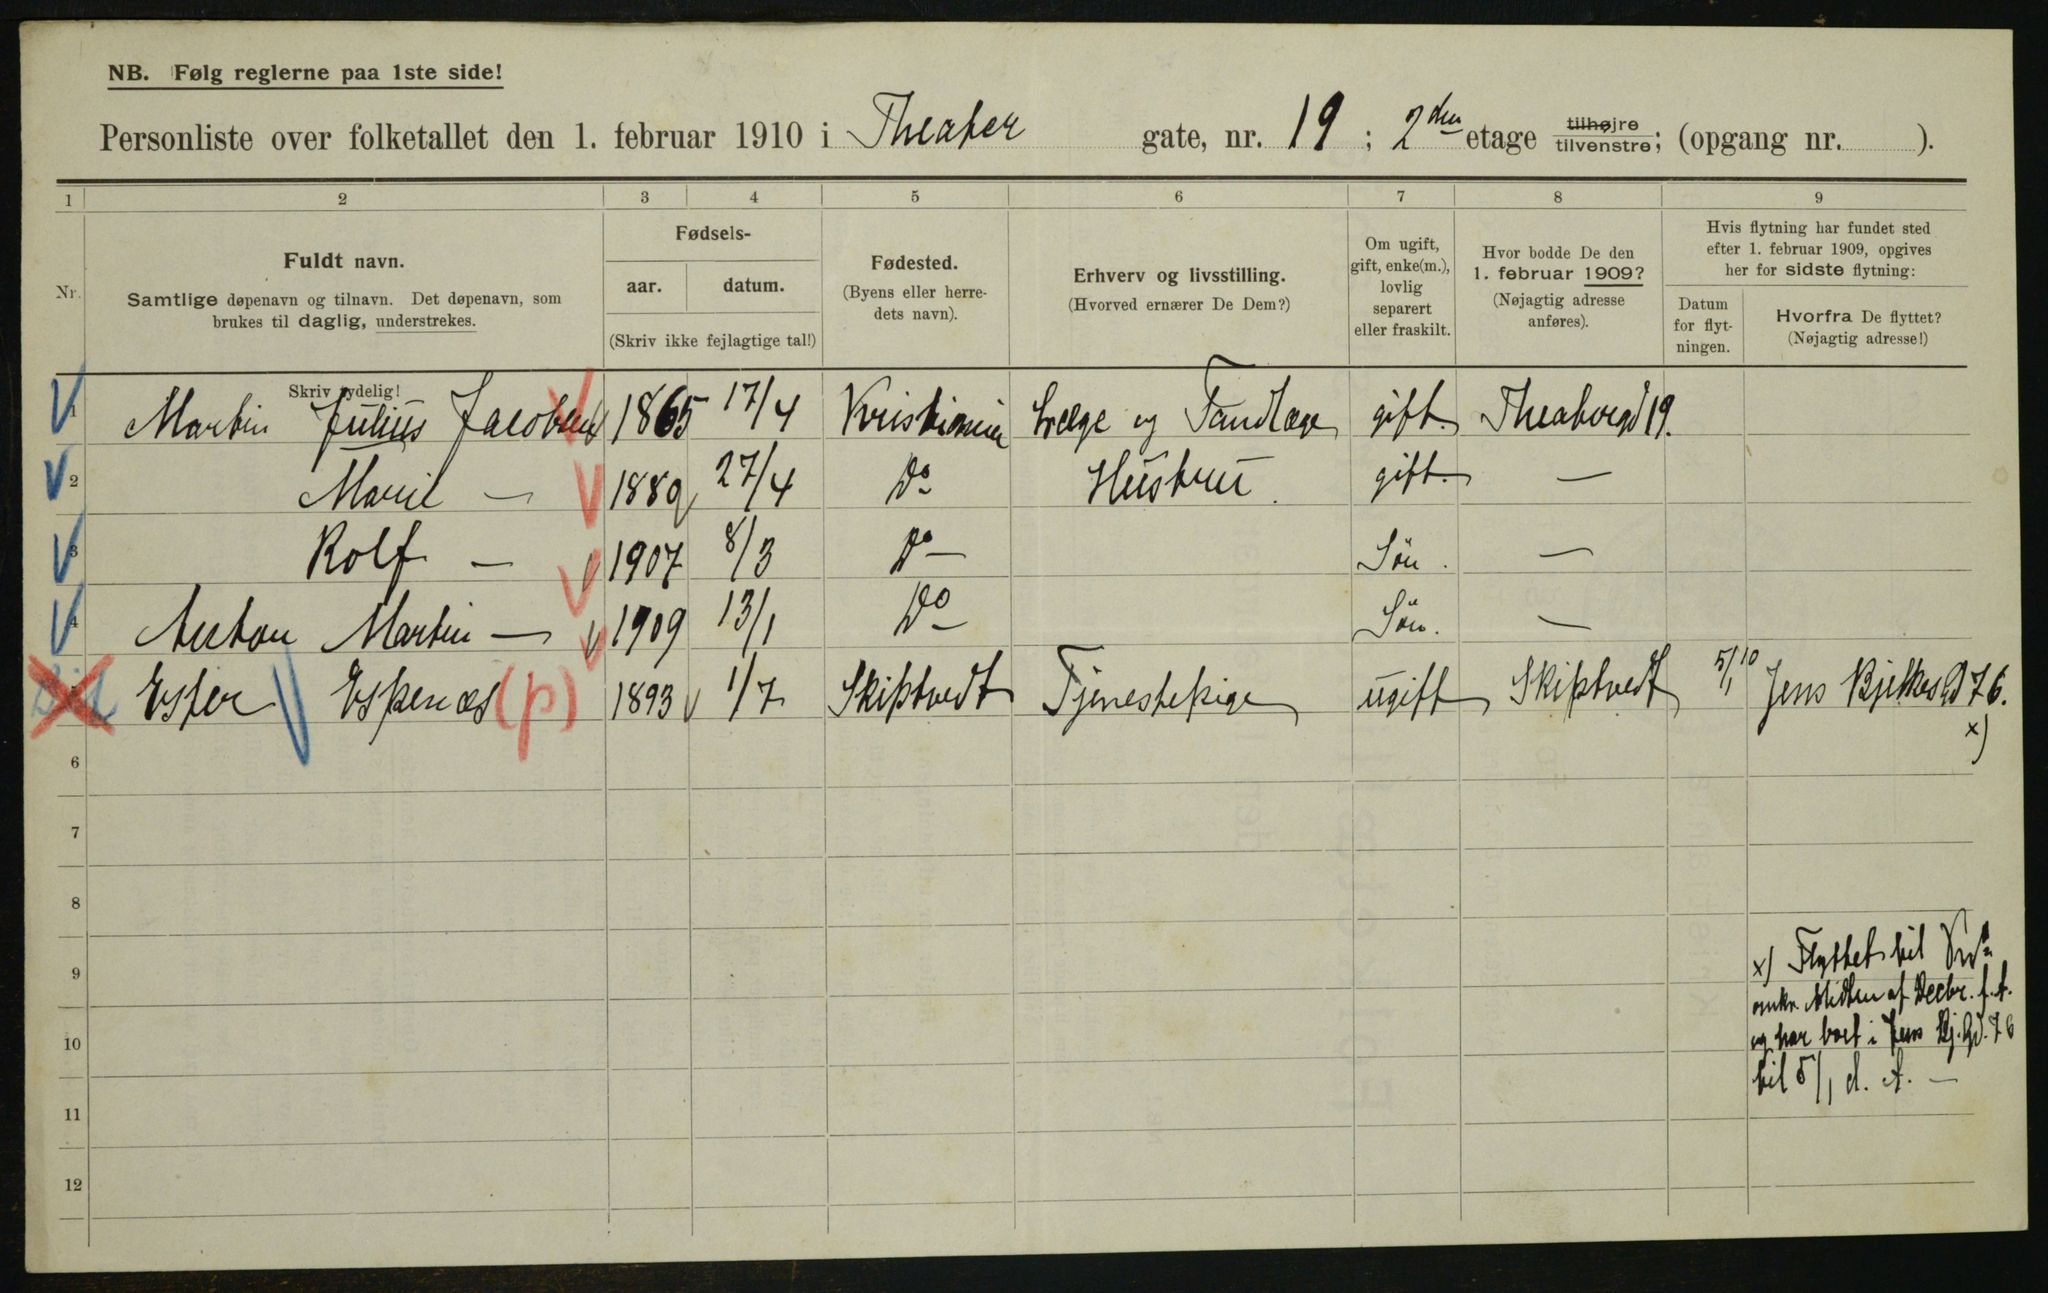 NB. Følg reglerne paa 1ste side!
Personliste over folketallet den 1. februar 1910 i Theater gate, nr. 19 ; 2den etage tilhøjre tilvenstre; (opgang nr. ).
1 2 3 4 5 6 7 8 9
Nr.
Fuldt navn.
Samtlige døpenavn og tilnavn. Det døpenavn, som
brukes til daglig, understrekes.
Fødsels-
aar. datum.
(Skriv ikke fejlagtige tal!)
Fødested.
(Byens eller herre-
dets navn).
Erhverv og livsstilling.
(Hvorved ernærer De Dem?)
Om ugift,
gift, enke(m.),
lovlig
separert
eller fraskilt.
Hvor bodde De den
1. februar 1909?
(Nøjagtig adresse
anføres).
Hvis flytning har fundet sted
efter 1. februar 1909, opgives
her for sidste flytning:
Datum
for flyt-
ningen.
Hvorfra De flyttet?
(Nøjagtig adresse!)
Skriv tydelig!
1 Martin Julius Jacobsen 1865 17/4 Kristiania Læge og Tandlæge gift. Theatergd 19.
2 Marie — 1889 27/4 Do gift. —
Hustru.
3 Rolf — 1907 8/3 Do — Sön. —
4 Anton Martin — 1909 13/1 Do Sön. —
Ester Espenæs (p) 1893 1/7 Skiptvedt Tjenestepige ugift Skiptvedt 5/1 10 Jens Bjelkes Gd 76.
x)
6
7
8
9
10
11
12
x) Flyttet til
omkr. Midten af Decbr. f. A.
og har boet i Jens Bj. Gd. 76
til 5/1 d. A. —